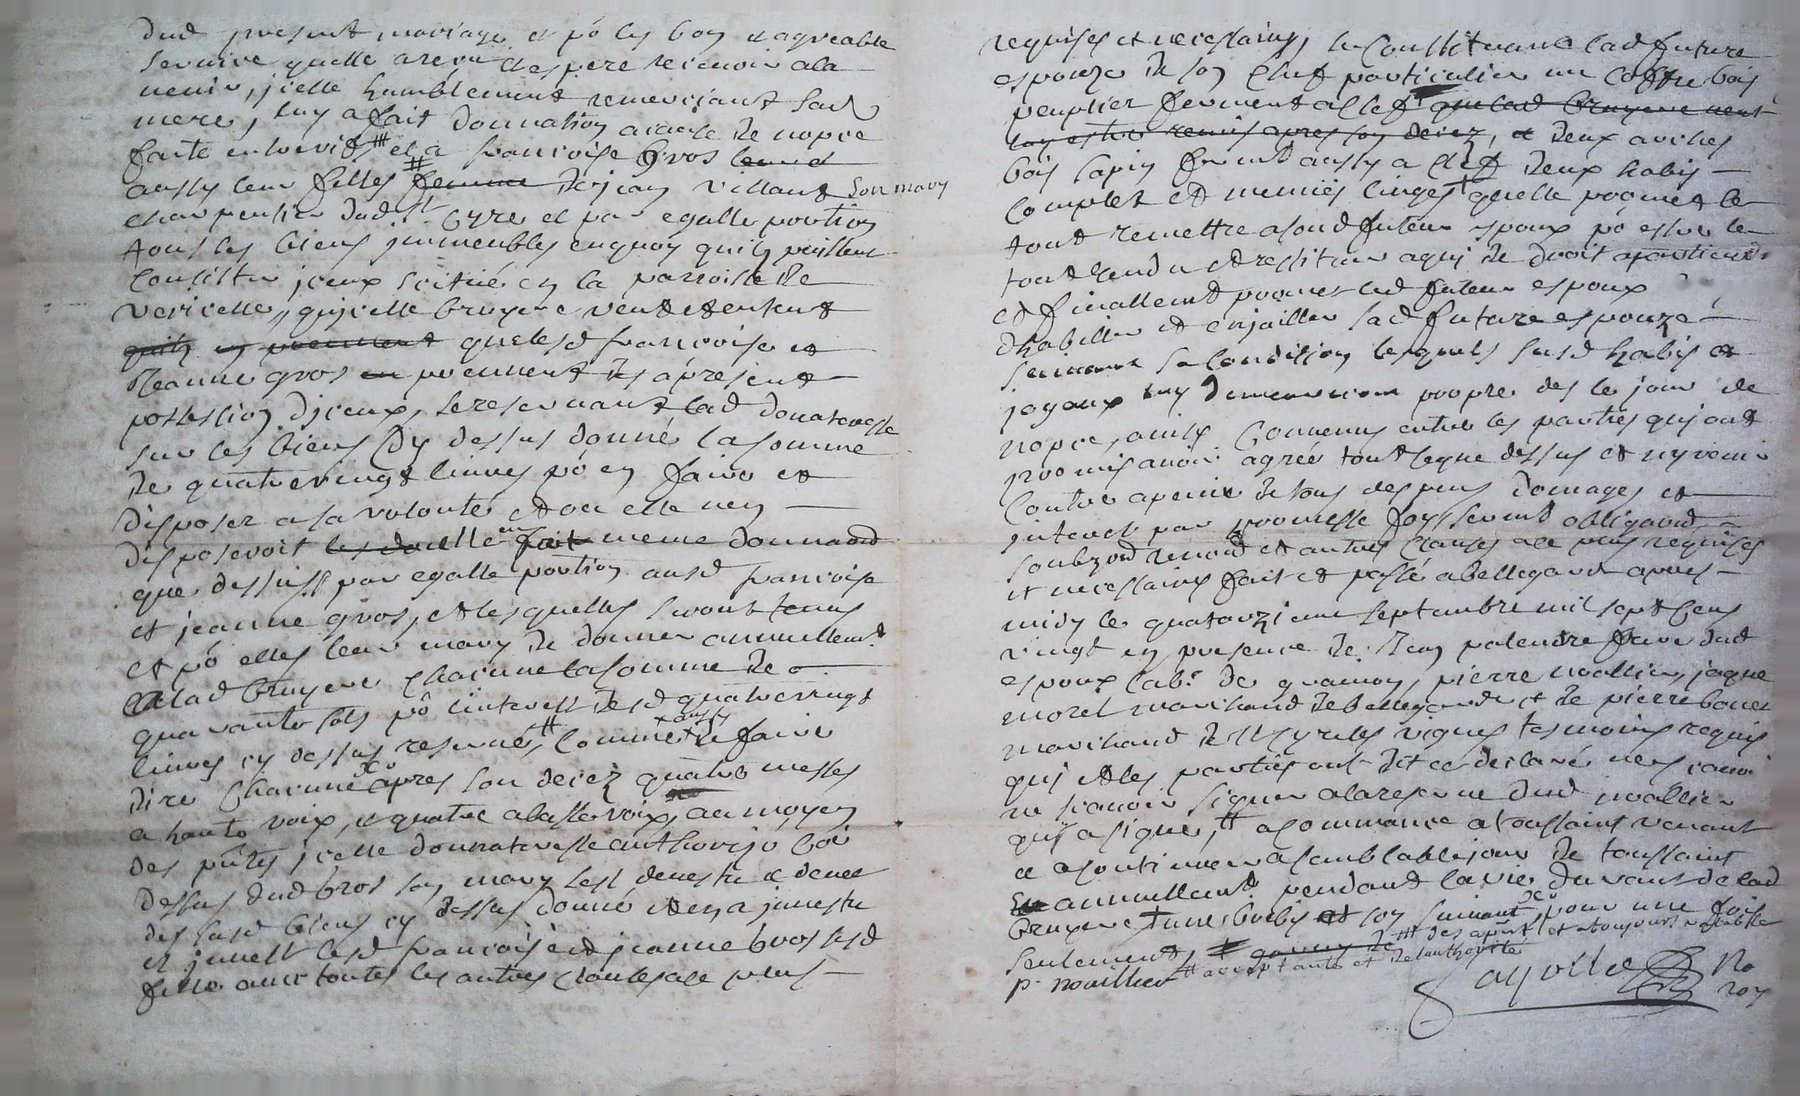 dud present mariage et po les bon et agreable
service quelle a reçu et espere recevoir a la
venir, jcelle humblement remerciant sad
mere, luy a fait donnation a cause de nopce
faite entre vifs et a francoise gros
aussy leur filles femme de jean villand son mary
charpentier dud St Cyre et par egalle portion
tous les biens jmmeubles enquoy quils puissent
Consister jceux scitués en la parroisse de
vericelle, qujcelle bruyere veut et entend
quils en prennent quelesd francoise et
Jeanne gros en prennent des apresent
possession djceux, se reservant lad donateresse
sur les biens Cy dessus donné la somme
de quatrevingt livres po en faire et
disposer a sa volonté et ou elle nen
disposeroit en fait meme donnaon
que dessus par egalle portion ausd francoise
et jeanne gros, et lesquelles seront tenus
et po elles leur mary de donner annuellemt
a lad bruyere chacune la somme de
quarante sols po linterest desd quatrevingt
livres cy dessus reservé, comme aussy de faire
dire chacune apres son decez quatre messes
a haute voix, et quatre a basse voix, au moyen
des pntes jcelle donnateresse authorisé Coe
dessus dud gros son mary sest devestu et devet
des susd biens cy dessus donné et en a jnvestu
et jnvest lesd francoise et jeanne gros sesd
filles avec toutes les autres clauses a ce plus
requises et necessaires, se Constituant lad future
espouze de son chef particulier un coffre bois
peuplier fermant a clef que lad bruyere veut
luy estre remis apres son decez, et deux arches
bois sapin fermt aussy a clef deux habis
complet et menues linges quelle promet le
tout remettre a sond futeur espoux po estre le
tout rendu et restituer a qui de droit apartiend
et finallemt promet led futeur espoux
dhabiller et enjoailler sad future espouze
suivant sa condition lesquels susd habis et
joyaux luy demeureront propre des le jour de
nopce, ainsy Convenus entre les parties qui ont
promis avoir agreé tout ceque dessus et ny venir
Contre a peine de tous despens domages et
jnterest par promesse foy sermt obligaond
soubzond renond et autres clauses a ce plus requises
et necessaires fait et passé a bellegarde apres
midy le quatorzieme septembre mil sept Cens
vingt en presence de Jean palandre frere dud
espoux labr de grainou, pierre noallier, jaque
morel marchand de bellegarde et de pierre bonet
marchand de St Cyr les vignes tesmoins requis
qui et les parties ont dit et declaré nes scavoir
ne scavoir signer a la reserve dud noallier
qui a signé, a commancer a toussaint venant
et a continuer a semblable jour de toussaint
annuellemt pendant la vie durant de lad
bruyere et une brebis et son suivant pour une fois
seulement, des aprnt et toujours payable
acceptante et de lauthorité
p. noaillier
no
roy